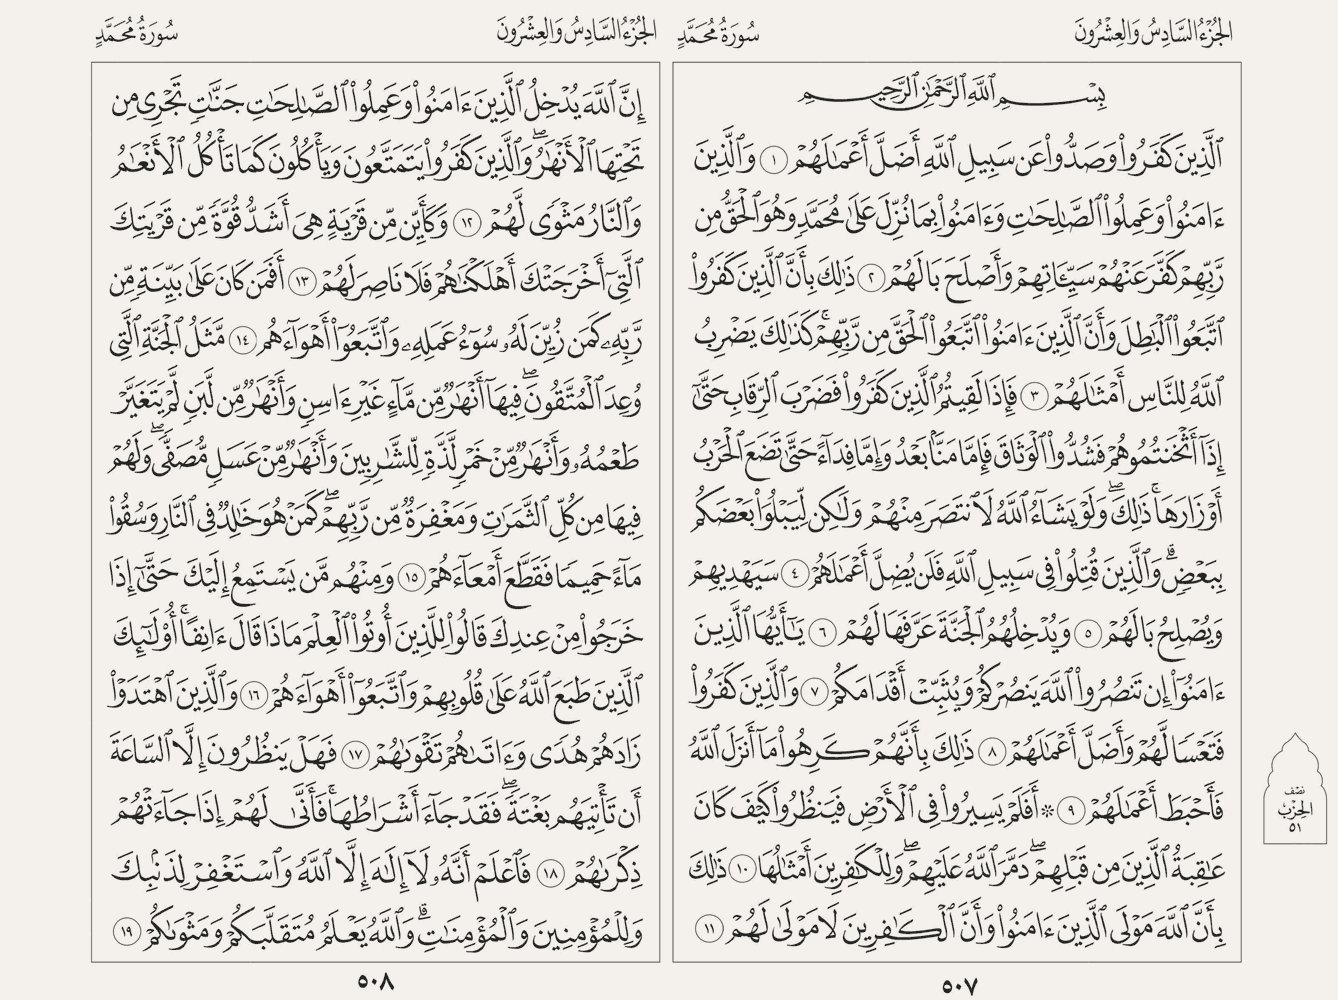 الجُزْءُ السَّادِسُ وَالعِشْرُونَ
سُورَةُ مُحَمَّدٍ
بِسْمِ ٱللَّهِ ٱلرَّحْمَٰنِ ٱلرَّحِيمِ
ٱلَّذِينَ كَفَرُوا۟ وَصَدُّوا۟ عَن سَبِيلِ ٱللَّهِ أَضَلَّ أَعْمَٰلَهُمْ ١ وَٱلَّذِينَ
ءَامَنُوا۟ وَعَمِلُوا۟ ٱلصَّٰلِحَٰتِ وَءَامَنُوا۟ بِمَا نُزِّلَ عَلَىٰ مُحَمَّدٍ وَهُوَ ٱلْحَقُّ مِن
رَّبِّهِمْ كَفَّرَ عَنْهُمْ سَيِّـَٔاتِهِمْ وَأَصْلَحَ بَالَهُمْ ٢ ذَٰلِكَ بِأَنَّ ٱلَّذِينَ كَفَرُوا۟
ٱتَّبَعُوا۟ ٱلْبَٰطِلَ وَأَنَّ ٱلَّذِينَ ءَامَنُوا۟ ٱتَّبَعُوا۟ ٱلْحَقَّ مِن رَّبِّهِمْ ۚ كَذَٰلِكَ يَضْرِبُ
ٱللَّهُ لِلنَّاسِ أَمْثَٰلَهُمْ ٣ فَإِذَا لَقِيتُمُ ٱلَّذِينَ كَفَرُوا۟ فَضَرْبَ ٱلرِّقَابِ حَتَّىٰٓ
إِذَآ أَثْخَنتُمُوهُمْ فَشُدُّوا۟ ٱلْوَثَاقَ فَإِمَّا مَنًّۢا بَعْدُ وَإِمَّا فِدَآءً حَتَّىٰ تَضَعَ ٱلْحَرْبُ
أَوْزَارَهَا ۚ ذَٰلِكَ ۖ وَلَوْ يَشَآءُ ٱللَّهُ لَٱنتَصَرَ مِنْهُمْ وَلَٰكِن لِّيَبْلُوَا۟ بَعْضَكُم
بِبَعْضٍ ۗ وَٱلَّذِينَ قُتِلُوا۟ فِى سَبِيلِ ٱللَّهِ فَلَن يُضِلَّ أَعْمَٰلَهُمْ ٤ سَيَهْدِيهِمْ
وَيُصْلِحُ بَالَهُمْ ٥ وَيُدْخِلُهُمُ ٱلْجَنَّةَ عَرَّفَهَا لَهُمْ ٦ يَٰٓأَيُّهَا ٱلَّذِينَ
ءَامَنُوٓا۟ إِن تَنصُرُوا۟ ٱللَّهَ يَنصُرْكُمْ وَيُثَبِّتْ أَقْدَامَكُمْ ٧ وَٱلَّذِينَ كَفَرُوا۟
فَتَعْسًا لَّهُمْ وَأَضَلَّ أَعْمَٰلَهُمْ ٨ ذَٰلِكَ بِأَنَّهُمْ كَرِهُوا۟ مَآ أَنزَلَ ٱللَّهُ
فَأَحْبَطَ أَعْمَٰلَهُمْ ٩ ۞ أَفَلَمْ يَسِيرُوا۟ فِى ٱلْأَرْضِ فَيَنظُرُوا۟ كَيْفَ كَانَ
عَٰقِبَةُ ٱلَّذِينَ مِن قَبْلِهِمْ ۖ دَمَّرَ ٱللَّهُ عَلَيْهِمْ ۖ وَلِلْكَٰفِرِينَ أَمْثَٰلُهَا ١٠ ذَٰلِكَ
بِأَنَّ ٱللَّهَ مَوْلَى ٱلَّذِينَ ءَامَنُوا۟ وَأَنَّ ٱلْكَٰفِرِينَ لَا مَوْلَىٰ لَهُمْ ١١
٥٠٧
نصْف
الحِزْبْ
٥١
الجُزْءُ السَّادِسُ وَالعِشْرُونَ
سُورَةُ مُحَمَّدٍ
إِنَّ ٱللَّهَ يُدْخِلُ ٱلَّذِينَ ءَامَنُوا۟ وَعَمِلُوا۟ ٱلصَّٰلِحَٰتِ جَنَّٰتٍ تَجْرِى مِن
تَحْتِهَا ٱلْأَنْهَٰرُ ۖ وَٱلَّذِينَ كَفَرُوا۟ يَتَمَتَّعُونَ وَيَأْكُلُونَ كَمَا تَأْكُلُ ٱلْأَنْعَٰمُ
وَٱلنَّارُ مَثْوًى لَّهُمْ ١٢ وَكَأَيِّن مِّن قَرْيَةٍ هِىَ أَشَدُّ قُوَّةً مِّن قَرْيَتِكَ
ٱلَّتِىٓ أَخْرَجَتْكَ أَهْلَكْنَٰهُمْ فَلَا نَاصِرَ لَهُمْ ١٣ أَفَمَن كَانَ عَلَىٰ بَيِّنَةٍ مِّن
رَّبِّهِۦ كَمَن زُيِّنَ لَهُۥ سُوٓءُ عَمَلِهِۦ وَٱتَّبَعُوٓا۟ أَهْوَآءَهُم ١٤ مَّثَلُ ٱلْجَنَّةِ ٱلَّتِى
وُعِدَ ٱلْمُتَّقُونَ ۖ فِيهَآ أَنْهَٰرٌ مِّن مَّآءٍ غَيْرِ ءَاسِنٍ وَأَنْهَٰرٌ مِّن لَّبَنٍ لَّمْ يَتَغَيَّرْ
طَعْمُهُۥ وَأَنْهَٰرٌ مِّنْ خَمْرٍ لَّذَّةٍ لِّلشَّٰرِبِينَ وَأَنْهَٰرٌ مِّنْ عَسَلٍ مُّصَفًّى ۖ وَلَهُمْ
فِيهَا مِن كُلِّ ٱلثَّمَرَٰتِ وَمَغْفِرَةٌ مِّن رَّبِّهِمْ ۖ كَمَنْ هُوَ خَٰلِدٌ فِى ٱلنَّارِ وَسُقُوا۟
مَآءً حَمِيمًا فَقَطَّعَ أَمْعَآءَهُمْ ١٥ وَمِنْهُم مَّن يَسْتَمِعُ إِلَيْكَ حَتَّىٰٓ إِذَا
خَرَجُوا۟ مِنْ عِندِكَ قَالُوا۟ لِلَّذِينَ أُوتُوا۟ ٱلْعِلْمَ مَاذَا قَالَ ءَانِفًا ۚ أُو۟لَٰٓئِكَ
ٱلَّذِينَ طَبَعَ ٱللَّهُ عَلَىٰ قُلُوبِهِمْ وَٱتَّبَعُوٓا۟ أَهْوَآءَهُمْ ١٦ وَٱلَّذِينَ ٱهْتَدَوْا۟
زَادَهُمْ هُدًى وَءَاتَىٰهُمْ تَقْوَىٰهُمْ ١٧ فَهَلْ يَنظُرُونَ إِلَّا ٱلسَّاعَةَ
أَن تَأْتِيَهُم بَغْتَةً ۖ فَقَدْ جَآءَ أَشْرَاطُهَا ۚ فَأَنَّىٰ لَهُمْ إِذَا جَآءَتْهُمْ
ذِكْرَىٰهُمْ ١٨ فَٱعْلَمْ أَنَّهُۥ لَآ إِلَٰهَ إِلَّا ٱللَّهُ وَٱسْتَغْفِرْ لِذَنۢبِكَ
وَلِلْمُؤْمِنِينَ وَٱلْمُؤْمِنَٰتِ ۗ وَٱللَّهُ يَعْلَمُ مُتَقَلَّبَكُمْ وَمَثْوَىٰكُمْ ١٩
٥٠٨